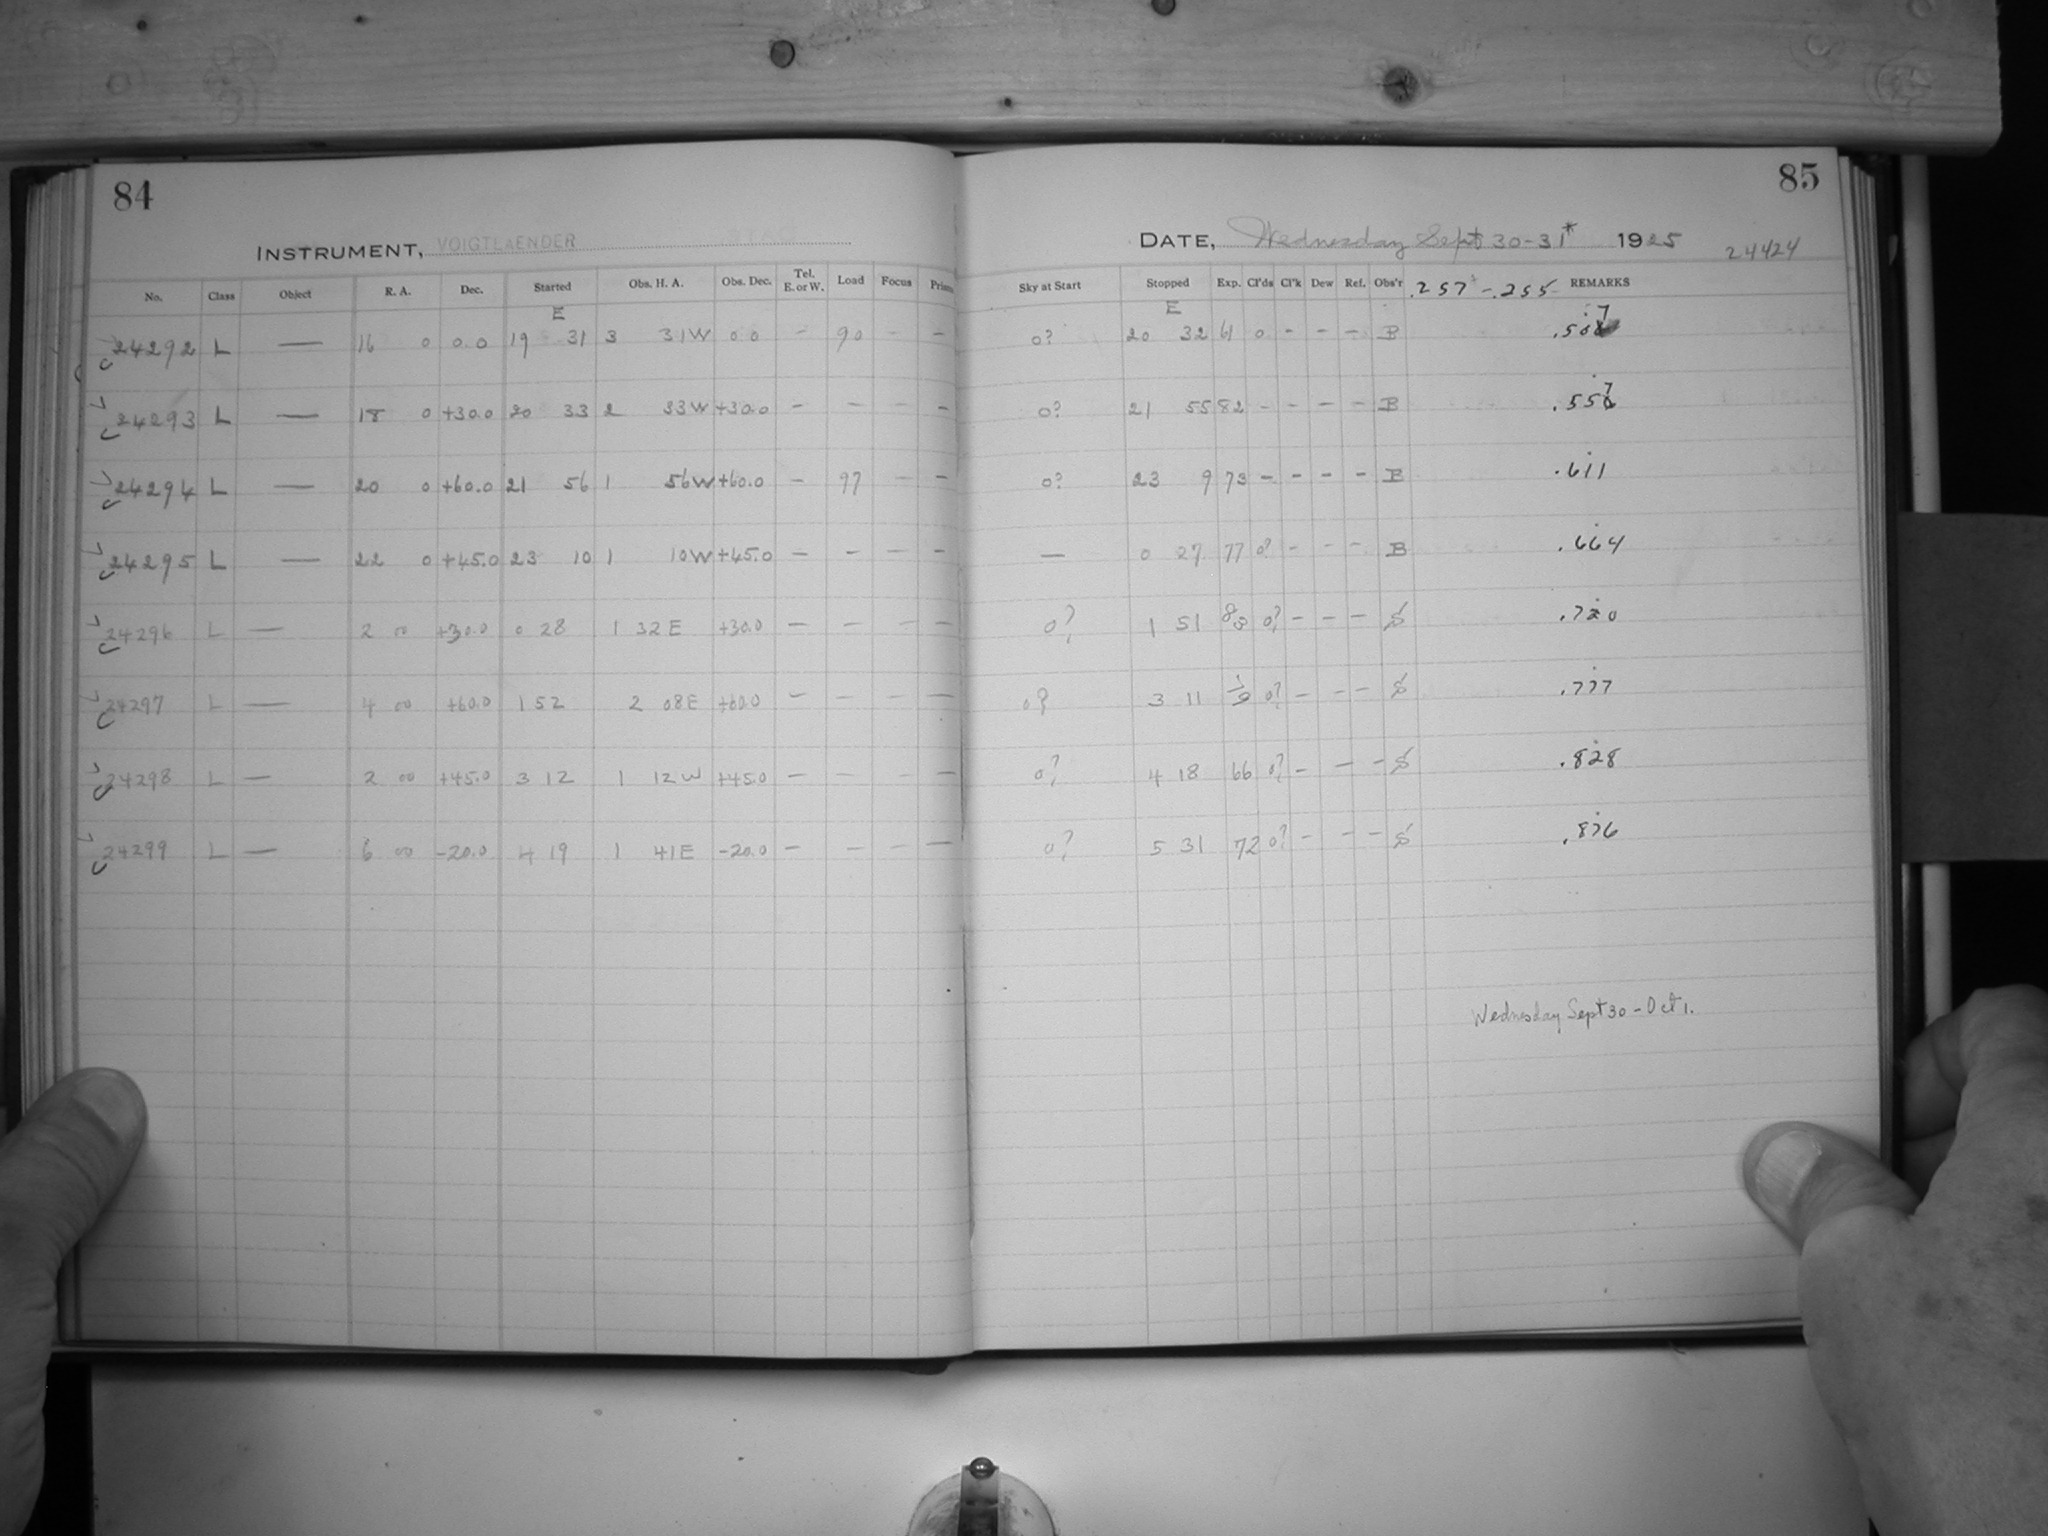 84
INSTRUMENT, VOIGTLAENDER
No. Class Object R. A. Dec. Started Obs. H. A. Obs. Dec. Tel. E. or W. Load Focus Prism
E
24292 L — 16 0 0.0 19 31 3 31W 0.0 - 90 - -
24293 L — 18 0 +30.0 20 33 2 33W +30.0 - - - -
24294 L — 20 0 +60.0 21 56 1 56W +60.0 - 97 - -
24295 L — 22 0 +45.0 23 10 1 10W +45.0 - - - -
24296 L — 2 00 +30.0 0 28 1 32E +30.0 - - - -
24297 L — 4 00 +60.0 1 52 2 08E +60.0 - - -
24298 L — 2 00 +45.0 3 12 1 12W +45.0 - - - -
24299 L — 6 00 -20.0 4 19 1 41E -20.0 - - - -
85
DATE, Wednesday Sept 30-31* 1925 24424
Sky at Start Stopped Exp. Cl'ds Cl'k Dew Ref. Obs'r .257 - .255 REMARKS
E
0? 20 32 61 0 - - - B .507
0? 21 55 82 - - - - B .557
0? 23 9 73 - - - - B .611
— 0 27 77 0? - - - B .664
0? 1 51 83 0? - - - S .720
0? 3 11 79 0? - - - S .777
0? 4 18 66 0? - - - S .828
0? 5 31 72 0? - - - S .876
Wednesday Sept 30 - Oct 1.